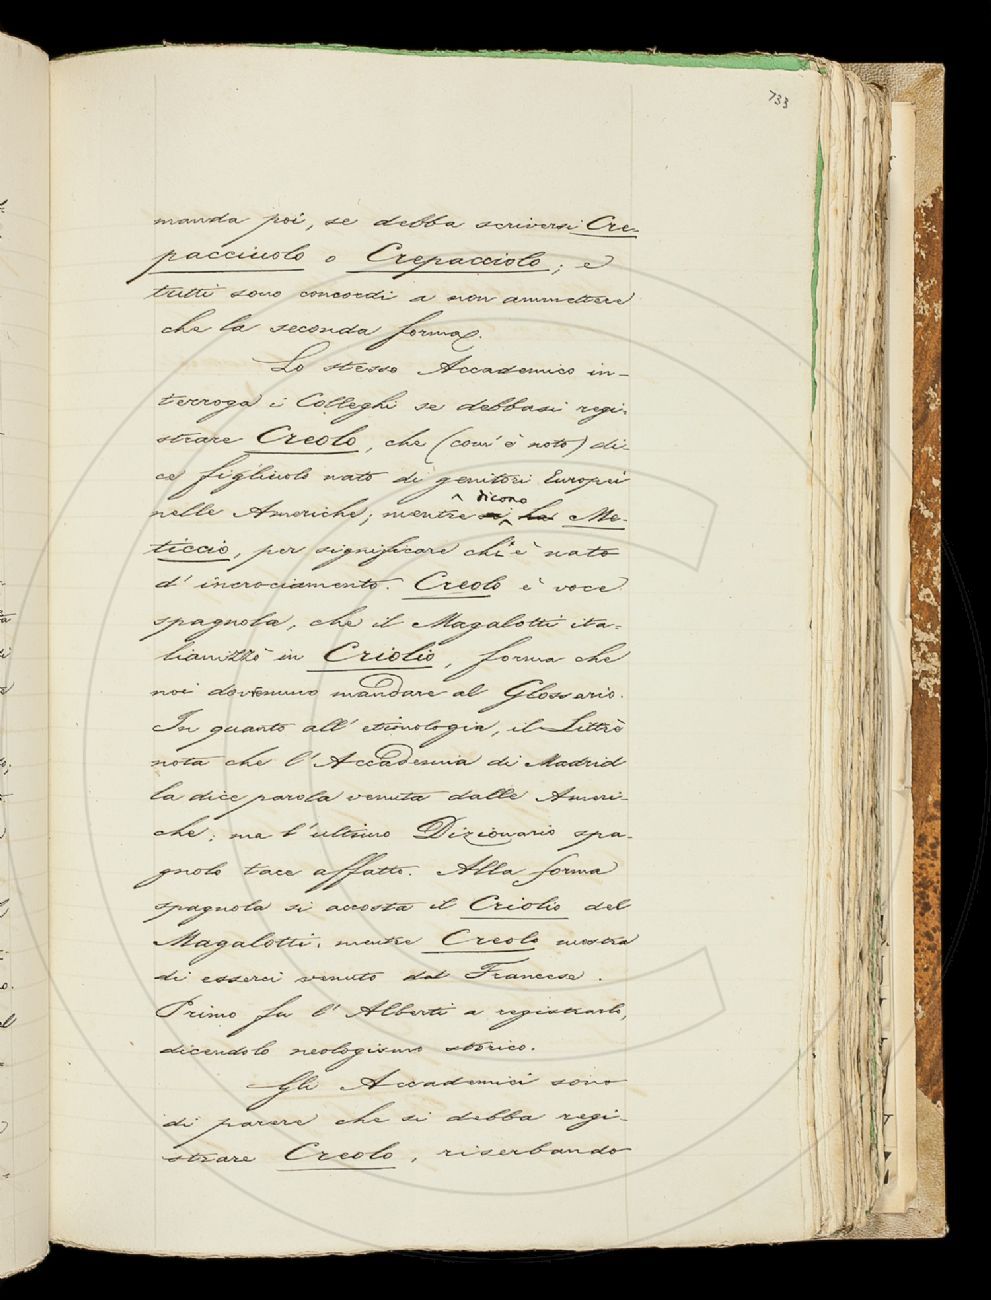 733
manda poi, se debba scriversi Cre-
pacciuolo o Crepacciolo; e
tutti sono concordi a non ammettere
che la seconda forma.
Lo stesso Accademico in-
terroga i Colleghi se debbasi regi-
strare Creolo, che (com' è noto) di-
ce figliuolo nato di genitori Europei
nelle Americhe; mentre dicono Me-
ticcio, per significare chi è nato
d' incrociamento. Creolo è voce
spagnola, che il Magalotti ita-
lianizzò in Criolio, forma che
noi dovremmo mandare al Glossario.
In quanto all' etimologia, il Littrè
nota che l' Accademia di Madrid
la dice parola venuta dalle Ameri-
che; ma l' ultimo Dizionario spa-
gnolo tace affatto. Alla forma
spagnola si accosta il Criolio del
Magalotti; mentre Creolo mostra
di esserci venuto dal Francese.
Primo fu l' Alberti a registrarlo,
dicendolo neologismo storico.
Gli Accademici sono
di parere che si debba regi-
strare Creolo, riserbando